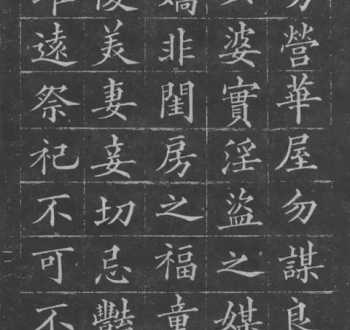 勿營華屋勿謀良
婆實淫盜之媒
嬌非閨房之福童
俊美妻妾切忌豔
遠祭祀不可不